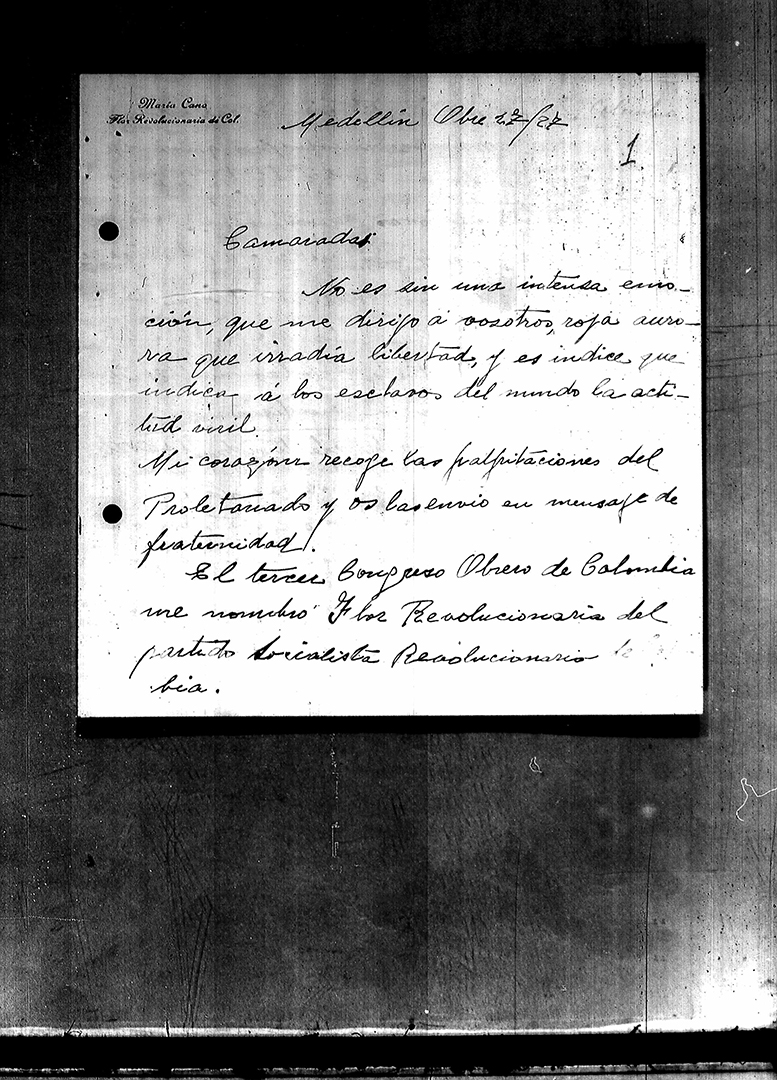 María Cano
Flor Revolucionaria de Col.
Medellín Obre 27/27
1
Camaradas
No es sin una intensa emo-
ción, que me dirijo á vosotros, roja auro-
ra que irradía libertad, y es indice que
indica á los esclavos del mundo la acti-
tud viril.
Mi corazón recoge las palpitaciones del
Proletariado y os las envio en mensaje de
fraternidad.
El tercer Congreso Obrero de Colombia
me nombró Flor Revolucionaria del
partido Socialista Revolucionario
bia.